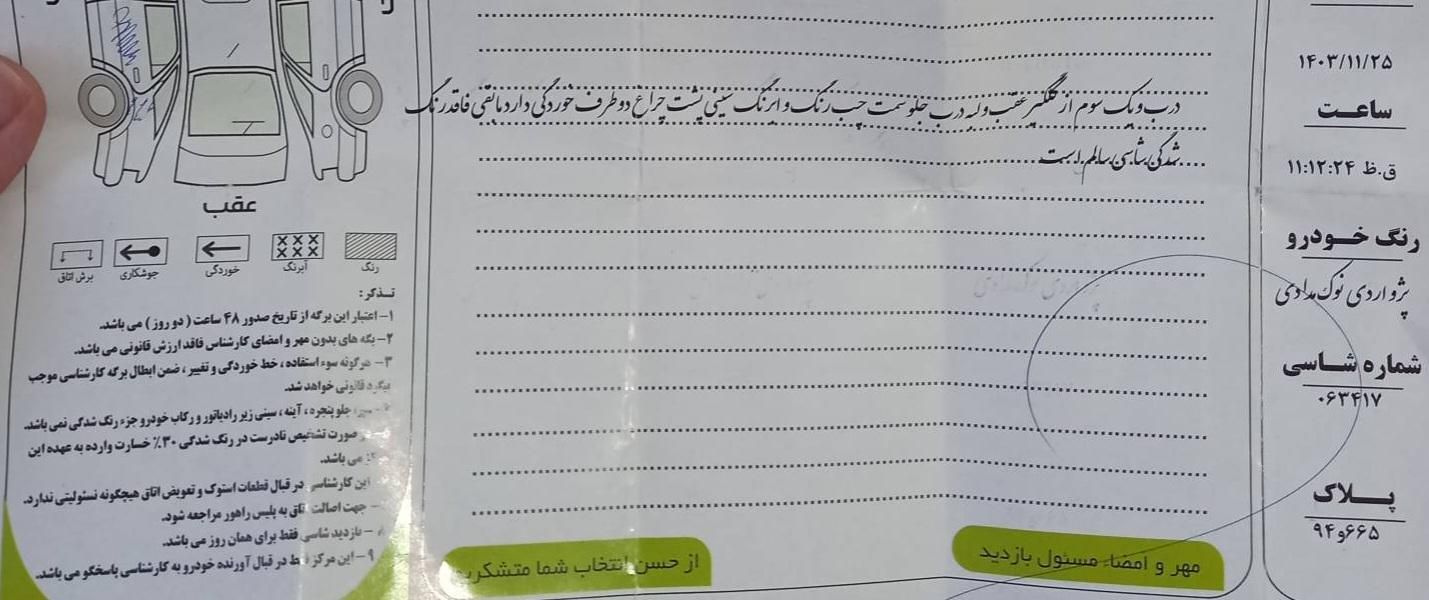 ۱۴۰۳/۱۱/۲۵
ساعت
۱۱:۱۲:۲۴ ق.ظ
رنگ خودرو
پژو اردی نوک مدادی
شماره شاسی
۰۶۳۴۱۷
پلاک
۹۴و۶۶۵
درب و یک سوم از گلگیر عقب و له درب جلو سمت چپ رنگ و ابرنگ سینی پشت چراغ دو طرف خوردگی دارد مابقی فاقد رنگ
شدگی شاسی سالم است
مهر و امضاء مسئول بازدید
از حسن انتخاب شما متشکریم
عقب
رنگ
آبرنگ
خوردگی
جوشکاری
برش اتاق
تذکر:
۱- اعتبار این برگه از تاریخ صدور ۴۸ ساعت ( دو روز ) می باشد.
۲- برگه های بدون مهر و امضای کارشناس فاقد ارزش قانونی می باشد.
۳- هرگونه سوء استفاده ، خط خوردگی و تغییر ، ضمن ابطال برگه کارشناسی موجب
پیگرد قانونی خواهد شد.
جلو پنجره ، آینه ، سینی زیر رادیاتور و رکاب خودرو جزء رنگ شدگی نمی باشد.
صورت تشخیص نادرست در رنگ شدگی ۳۰٪ خسارت وارده به عهده این
می باشد.
این کارشناسی در قبال قطعات استوک و تعویض اتاق هیچگونه مسئولیتی ندارد.
- جهت اصالت اتاق به پلیس راهور مراجعه شود.
- بازدید شاسی فقط برای همان روز می باشد.
۹- این مرکز فقط در قبال آورنده خودرو به کارشناسی پاسخگو می باشد.